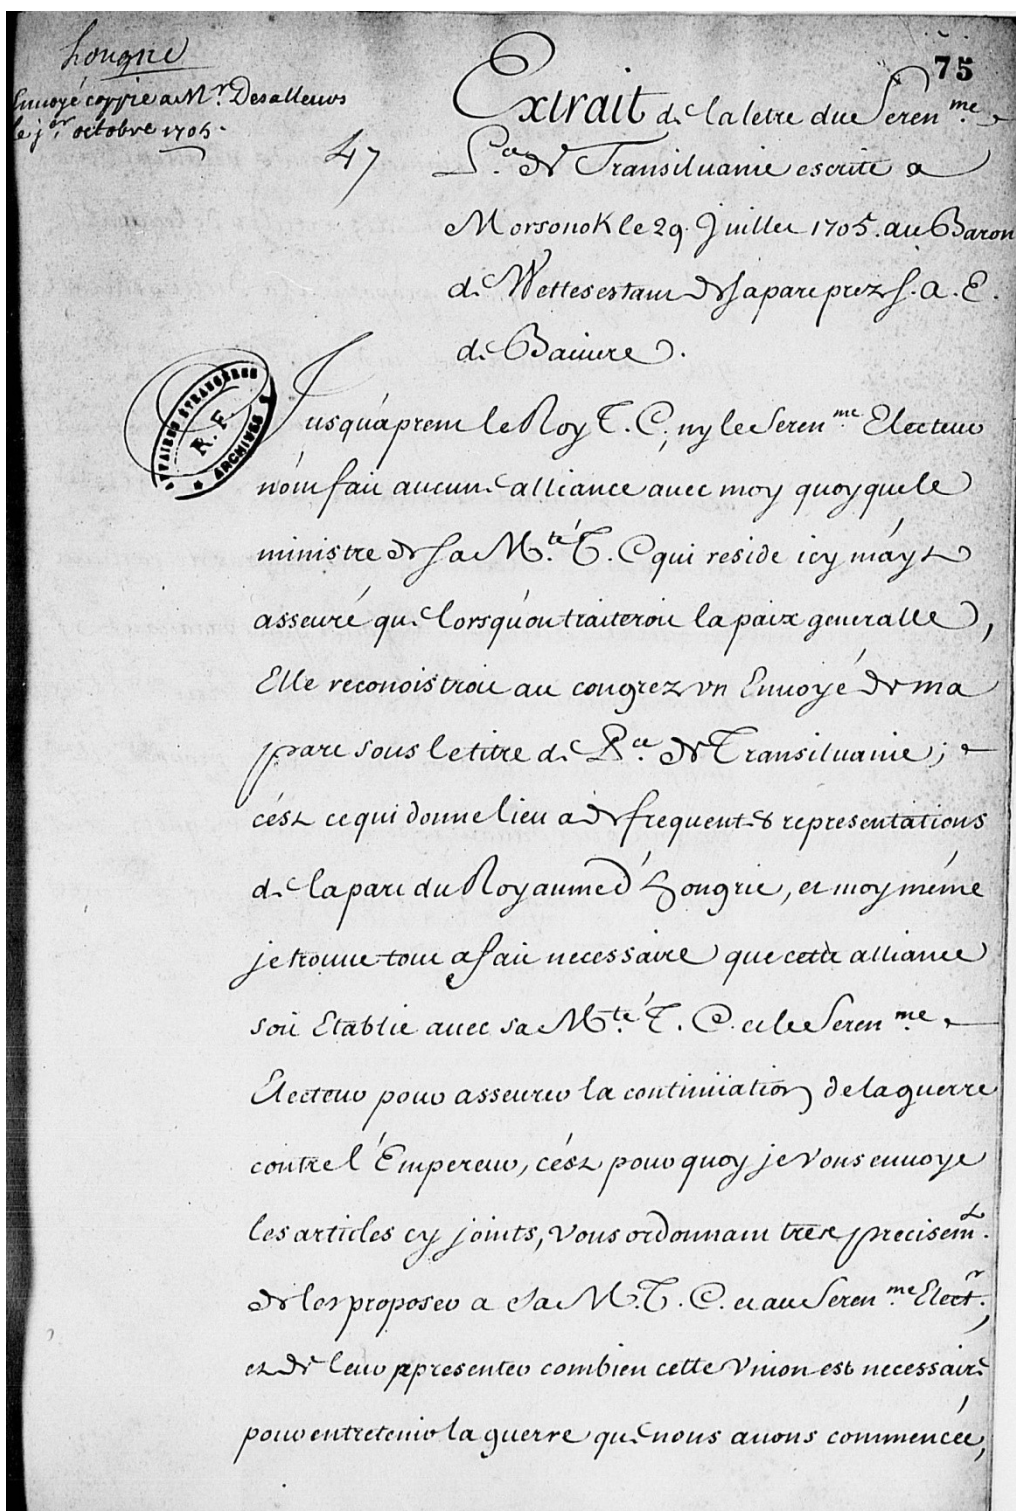 hongrie
Envoyé coppie a Mr. Desalleurs
le jer. octobre 1705.
75
47
Extrait de la letre du Seren.me
P.ce de Transiluanie escrite a
Morsonok le 29. Juillet 1705. au Baron
de Wettes estant de sa part prez S. A. E.
de Bauiere.
AFFAIRES ÉTRANGÈRES
R. F.
ARCHIVES
Jusqu'a prent le Roy T. C. ny le Seren.me Electeur
n'ont fait aucune alliance avec moy quoyque le
ministre de Sa M.té T. C qui reside icy m'ayt
asseuré que lorsqu'on traiteroit la paix generalle,
Elle reconoistroit au congrez vn Enuoyé de ma
part sous le titre de P.ce de Transiluanie;
c'est ce qui donne lieu a de frequentes representations
de la part du Royaume d'hongrie, et moy méme
je trouue tout a fait necessaire que cette alliance
soit Etablie auec sa M.té T. C. et le Seren.me
Electeur pour asseurer la continüation de la guerre
contre l'Empereur, c'est pour quoy je Vous enuoye
les articles cy joints, Vous ordonnant tres precisem.t
de les proposer a Sa M. T. C. et au Seren.me Elect.r
et de leur representer combien cette Vnion est necessaire
pour entretenir la guerre que nous auons commencée,